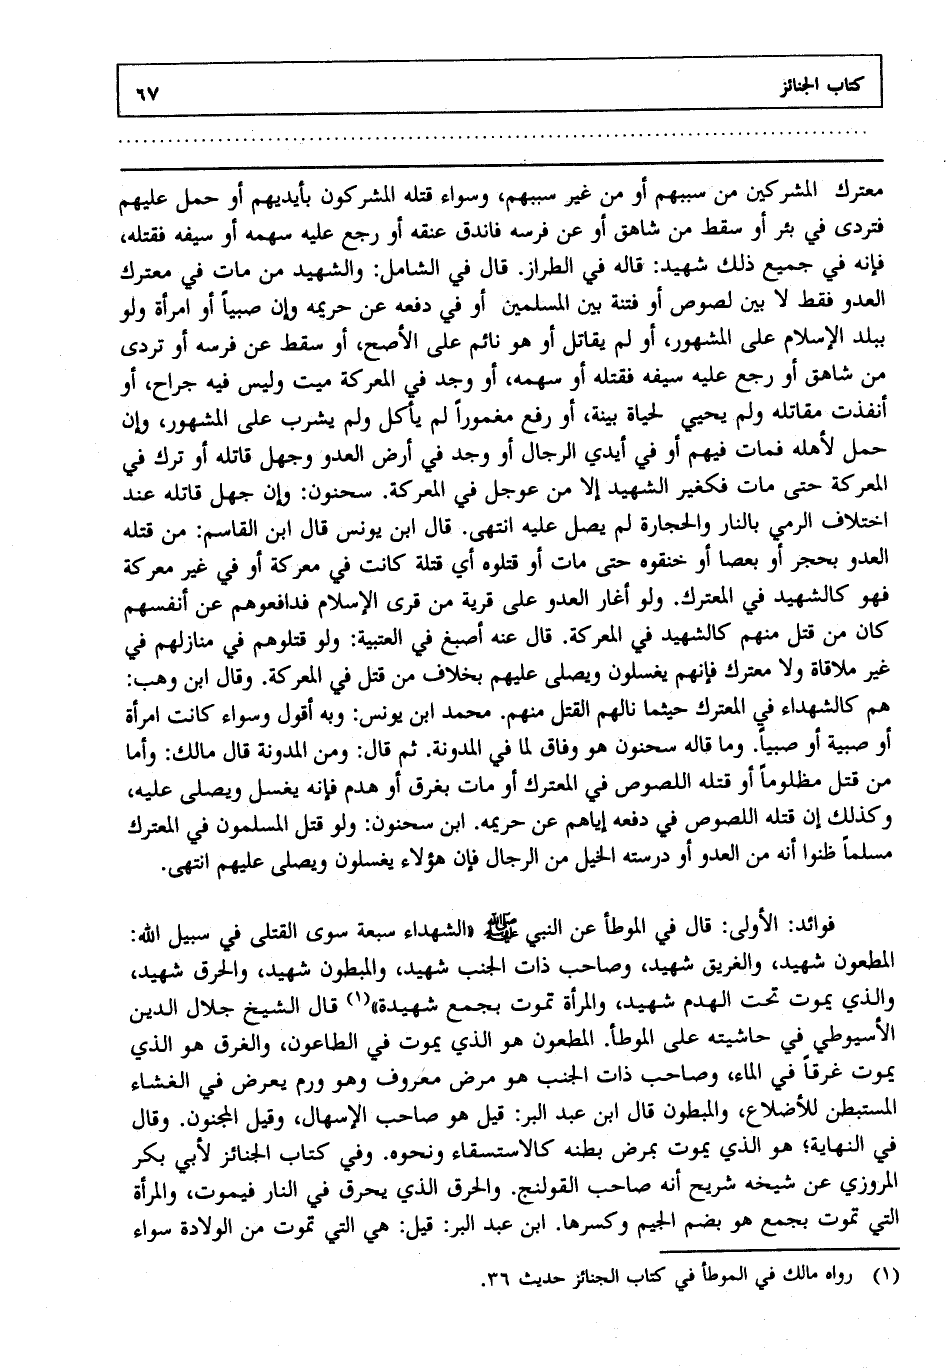 كتاب الجنائز ٦٧
معترك المشركين من سببهم أو من غير سببهم، وسواء قتله المشركون بأيديهم أو حمل عليهم
فتردى في بئر أو سقط من شاهق أو عن فرسه فاندق عنقه أو رجع عليه سهمه أو سيفه فقتله،
فإنه في جميع ذلك شهيد: قاله في الطراز. قال في الشامل: والشهيد من مات في معترك
العدو فقط لا بين لصوص أو فتنة بين المسلمين أو في دفعه عن حريمه وإن صبياً أو امرأة ولو
ببلد الإسلام على المشهور، أو لم يقاتل أو هو نائم على الأصح، أو سقط عن فرسه أو تردى
من شاهق أو رجع عليه سيفه فقتله أو سهمه، أو وجد في المعركة ميت وليس فيه جراح، أو
أنفذت مقاتله ولم يحيي لحياة بينة، أو رفع مغموراً لم يأكل ولم يشرب على المشهور، وإن
حمل لأهله فمات فيهم أو في أيدي الرجال أو وجد في أرض العدو وجهل قاتله أو ترك في
المعركة حتى مات فكغير الشهيد إلا من عوجل في المعركة. سحنون: وإن جهل قاتله عند
اختلاف الرمي بالنار والحجارة لم يصل عليه انتهى. قال ابن يونس قال ابن القاسم: من قتله
العدو بحجر أو بعصا أو خنقوه حتى مات أو قتلوه أي قتلة كانت في معركة أو في غير معركة
فهو كالشهيد في المعترك. ولو أغار العدو على قرية من قرى الإسلام فدافعوهم عن أنفسهم
كان من قتل منهم كالشهيد في المعركة. قال عنه أصبغ في العتبية: ولو قتلوهم في منازلهم في
غير ملاقاة ولا معترك فإنهم يغسلون ويصلى عليهم بخلاف من قتل في المعركة. وقال ابن وهب:
هم كالشهداء في المعترك حيثما نالهم القتل منهم. محمد ابن يونس: وبه أقول وسواء كانت امرأة
أو صبية أو صبياً. وما قاله سحنون هو وفاق لما في المدونة. ثم قال: ومن المدونة قال مالك: وأما
من قتل مظلوماً أو قتله اللصوص في المعترك أو مات بغرق أو هدم فإنه يغسل ويصلى عليه،
وكذلك إن قتله اللصوص في دفعه إياهم عن حريمه. ابن سحنون: ولو قتل المسلمون في المعترك
مسلماً ظنوا أنه من العدو أو درسته الخيل من الرجال فإن هؤلاء يغسلون ويصلى عليهم انتهى.
فوائد: الأولى: قال في الموطأ عن النبي ﷺ «الشهداء سبعة سوى القتلى في سبيل الله:
المطعون شهيد، والغريق شهيد، وصاحب ذات الجنب شهيد، والمبطون شهيد، والحرق شهيد،
والذي يموت تحت الهدم شهيد، والمرأة تموت بجمع شهيدة»(١) قال الشيخ جلال الدين
الأسيوطي في حاشيته على الموطأ. المطعون هو الذي يموت في الطاعون، والغرق هو الذي
يموت غرقاً في الماء، وصاحب ذات الجنب هو مرض معروف وهو ورم يعرض في الغشاء
المستبطن للأضلاع، والمبطون قال ابن عبد البر: قيل هو صاحب الإسهال، وقيل المجنون. وقال
في النهاية؛ هو الذي يموت بمرض بطنه كالاستسقاء ونحوه. وفي كتاب الجنائز لأبي بكر
المروزي عن شيخه شريح أنه صاحب القولنج. والحرق الذي يحرق في النار فيموت، والمرأة
التي تموت بجمع هو بضم الجيم وكسرها. ابن عبد البر: قيل: هي التي تموت من الولادة سواء
(١) رواه مالك في الموطأ في كتاب الجنائز حديث ٣٦.